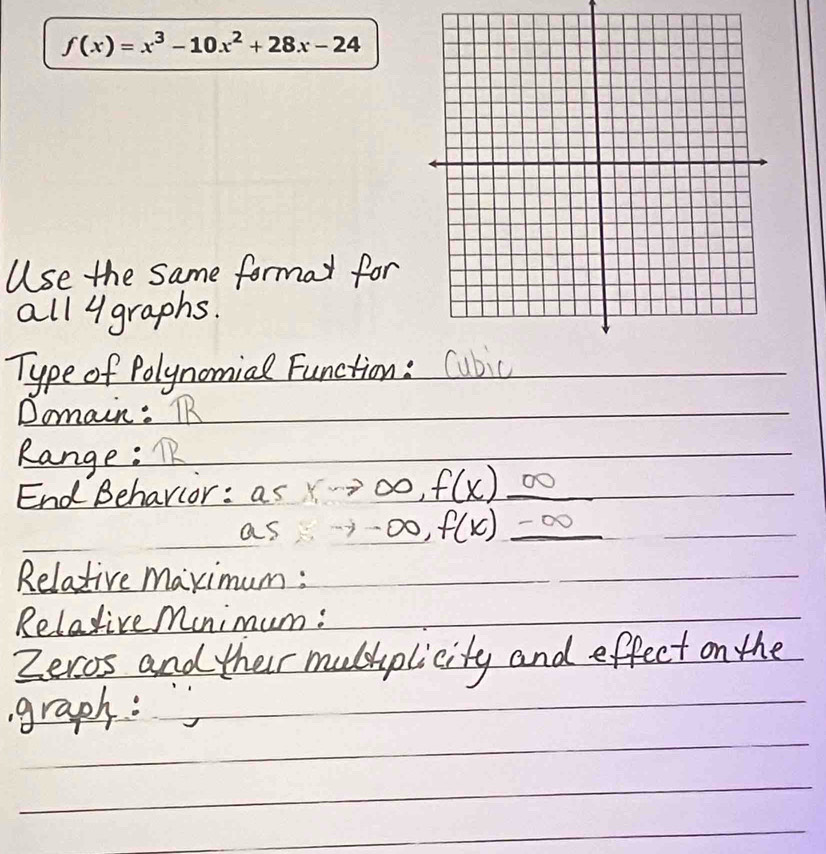 f(x) = x³ − 10x² + 28x − 24
Use the same format for
all 4 graphs.
Type of Polynomial Function: Cubic
Domain: ℝ
Range: ℝ
End Behavior: as x → ∞, f(x) ∞
as x → -∞, f(x) -∞
Relative Maximum:
Relative Minimum:
Zeros and their multiplicity and effect on the
graph: